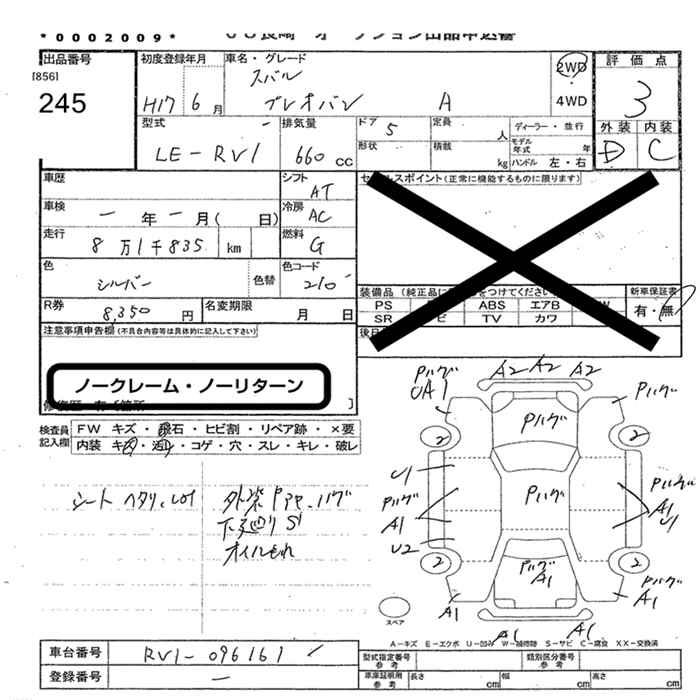 *0002009*
オークション出品申込書
出品番号 初度登録年月 車名・グレード 評価点
[856] スバル 2WD
245 H17 6月 プレオバン A 4WD 3
型式 排気量 ドア 5 定員 人 ディーラー・並行 外装 内装
LE-RV1 660 cc 形状 積載 kg モデル年式 年 ハンドル 左・右 D C
車歴 シフト AT セールスポイント(正常に機能するものに限ります)
車検 ー年ー月( 日) 冷房 AC
走行 8万1千835 km 燃料 G
色 シルバー 色替 色コード 210
装備品 新車保証書
PS ABS エアB 有・無
SR TV カワ
R券 8,350円 名変期限 月 日
注意事項申告欄(不具合内容等は具体的に記入して下さい)
ノークレーム・ノーリターン
検査員記入欄 FW キズ・飛石・ヒビ割・リペア跡・×要
内装 キズ・汚れ・コゲ・穴・スレ・キレ・破レ
シート ヘタリ 外装 ハゲ
下廻りS1
オイルもれ
A2 A2 A2
Pハゲ Pハゲ
UA1
Pハゲ
2 2
U1
Pハゲ Pハゲ Pハゲ
A1 A1
U1
U2
2 2
Pハゲ
A1
Pハゲ
A1 A1
スペア
A1 A1
A-キズ E-エクボ U-凹み W-補修跡 S-サビ C-腐食 XX-交換済
車台番号 RV1-096161
型式指定番号 参考 類別区分番号 参考
登録番号 ー
車庫証明用 参考 長さ cm 幅 cm 高さ cm